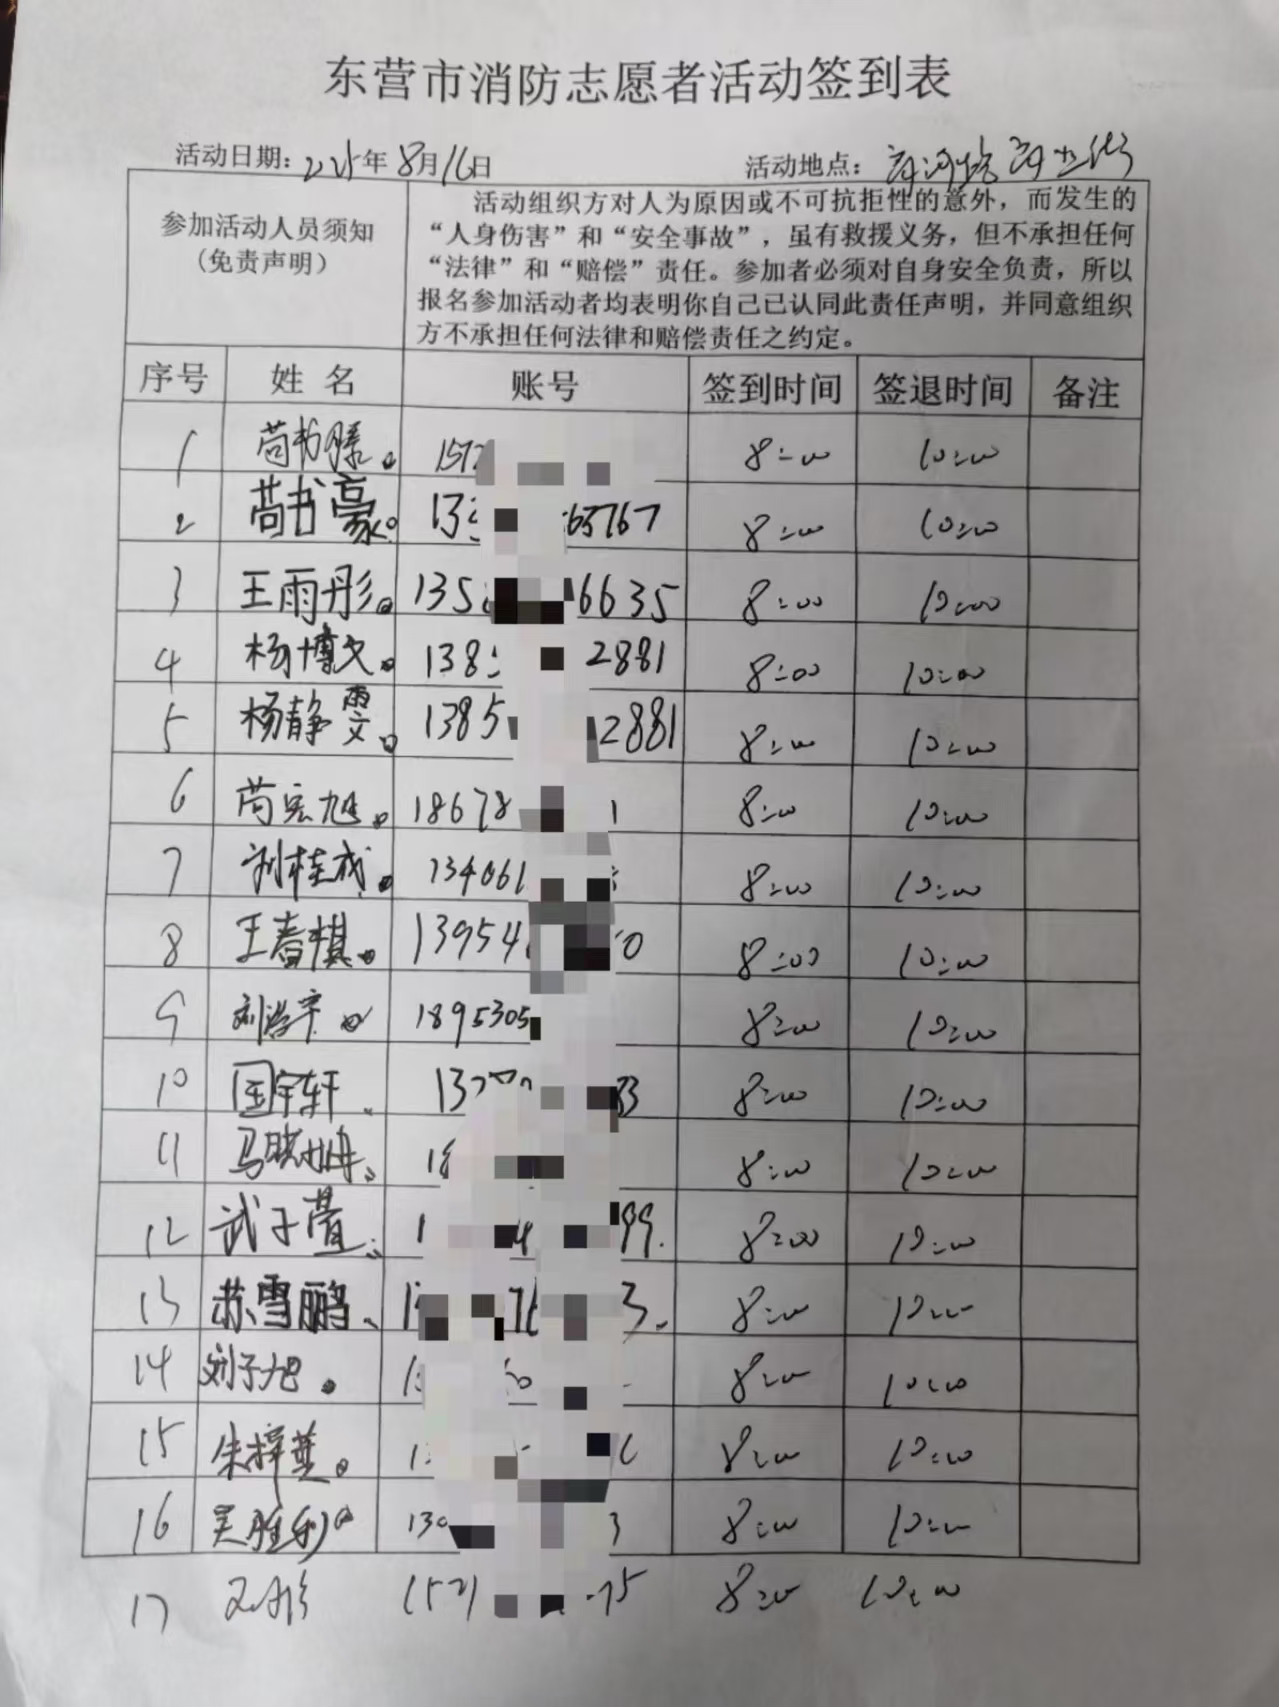 东营市消防志愿者活动签到表
活动日期: 2025年8月16日 活动地点:
参加活动人员须知
(免责声明)
活动组织方对人为原因或不可抗拒性的意外，而发生的
“人身伤害”和“安全事故”，虽有救援义务，但不承担任何
“法律”和“赔偿”责任。参加者必须对自身安全负责，所以
报名参加活动者均表明你自己已认同此责任声明，并同意组织
方不承担任何法律和赔偿责任之约定。
序号 姓名 账号 签到时间 签退时间 备注
1 苘书滕 157 8:00 10:00
2 苘书豪 13 65767 8:00 10:00
3 王雨彤 135 6635 8:00 10:00
4 杨博文 138 2881 8:00 10:00
5 杨静雯 1385 2881 8:00 10:00
6 苘宏旭 18678 1 8:00 10:00
7 刘桂成 134061 8:00 10:00
8 王春棋 13954 0 8:00 10:00
9 刘 1895305 8:00 10:00
10 国宇轩 13 33 8:00 10:00
11 马晓 18 8:00 10:00
12 武子萱 1 4 99. 8:00 10:00
13 苏雪鹏 1 76 3. 8:00 10:00
14 刘子旭 1 8:00 10:00
15 朱梓 1 8:00 10:00
16 吴胜利 130 3 8:00 10:00
17 152 75 8:00 10:00